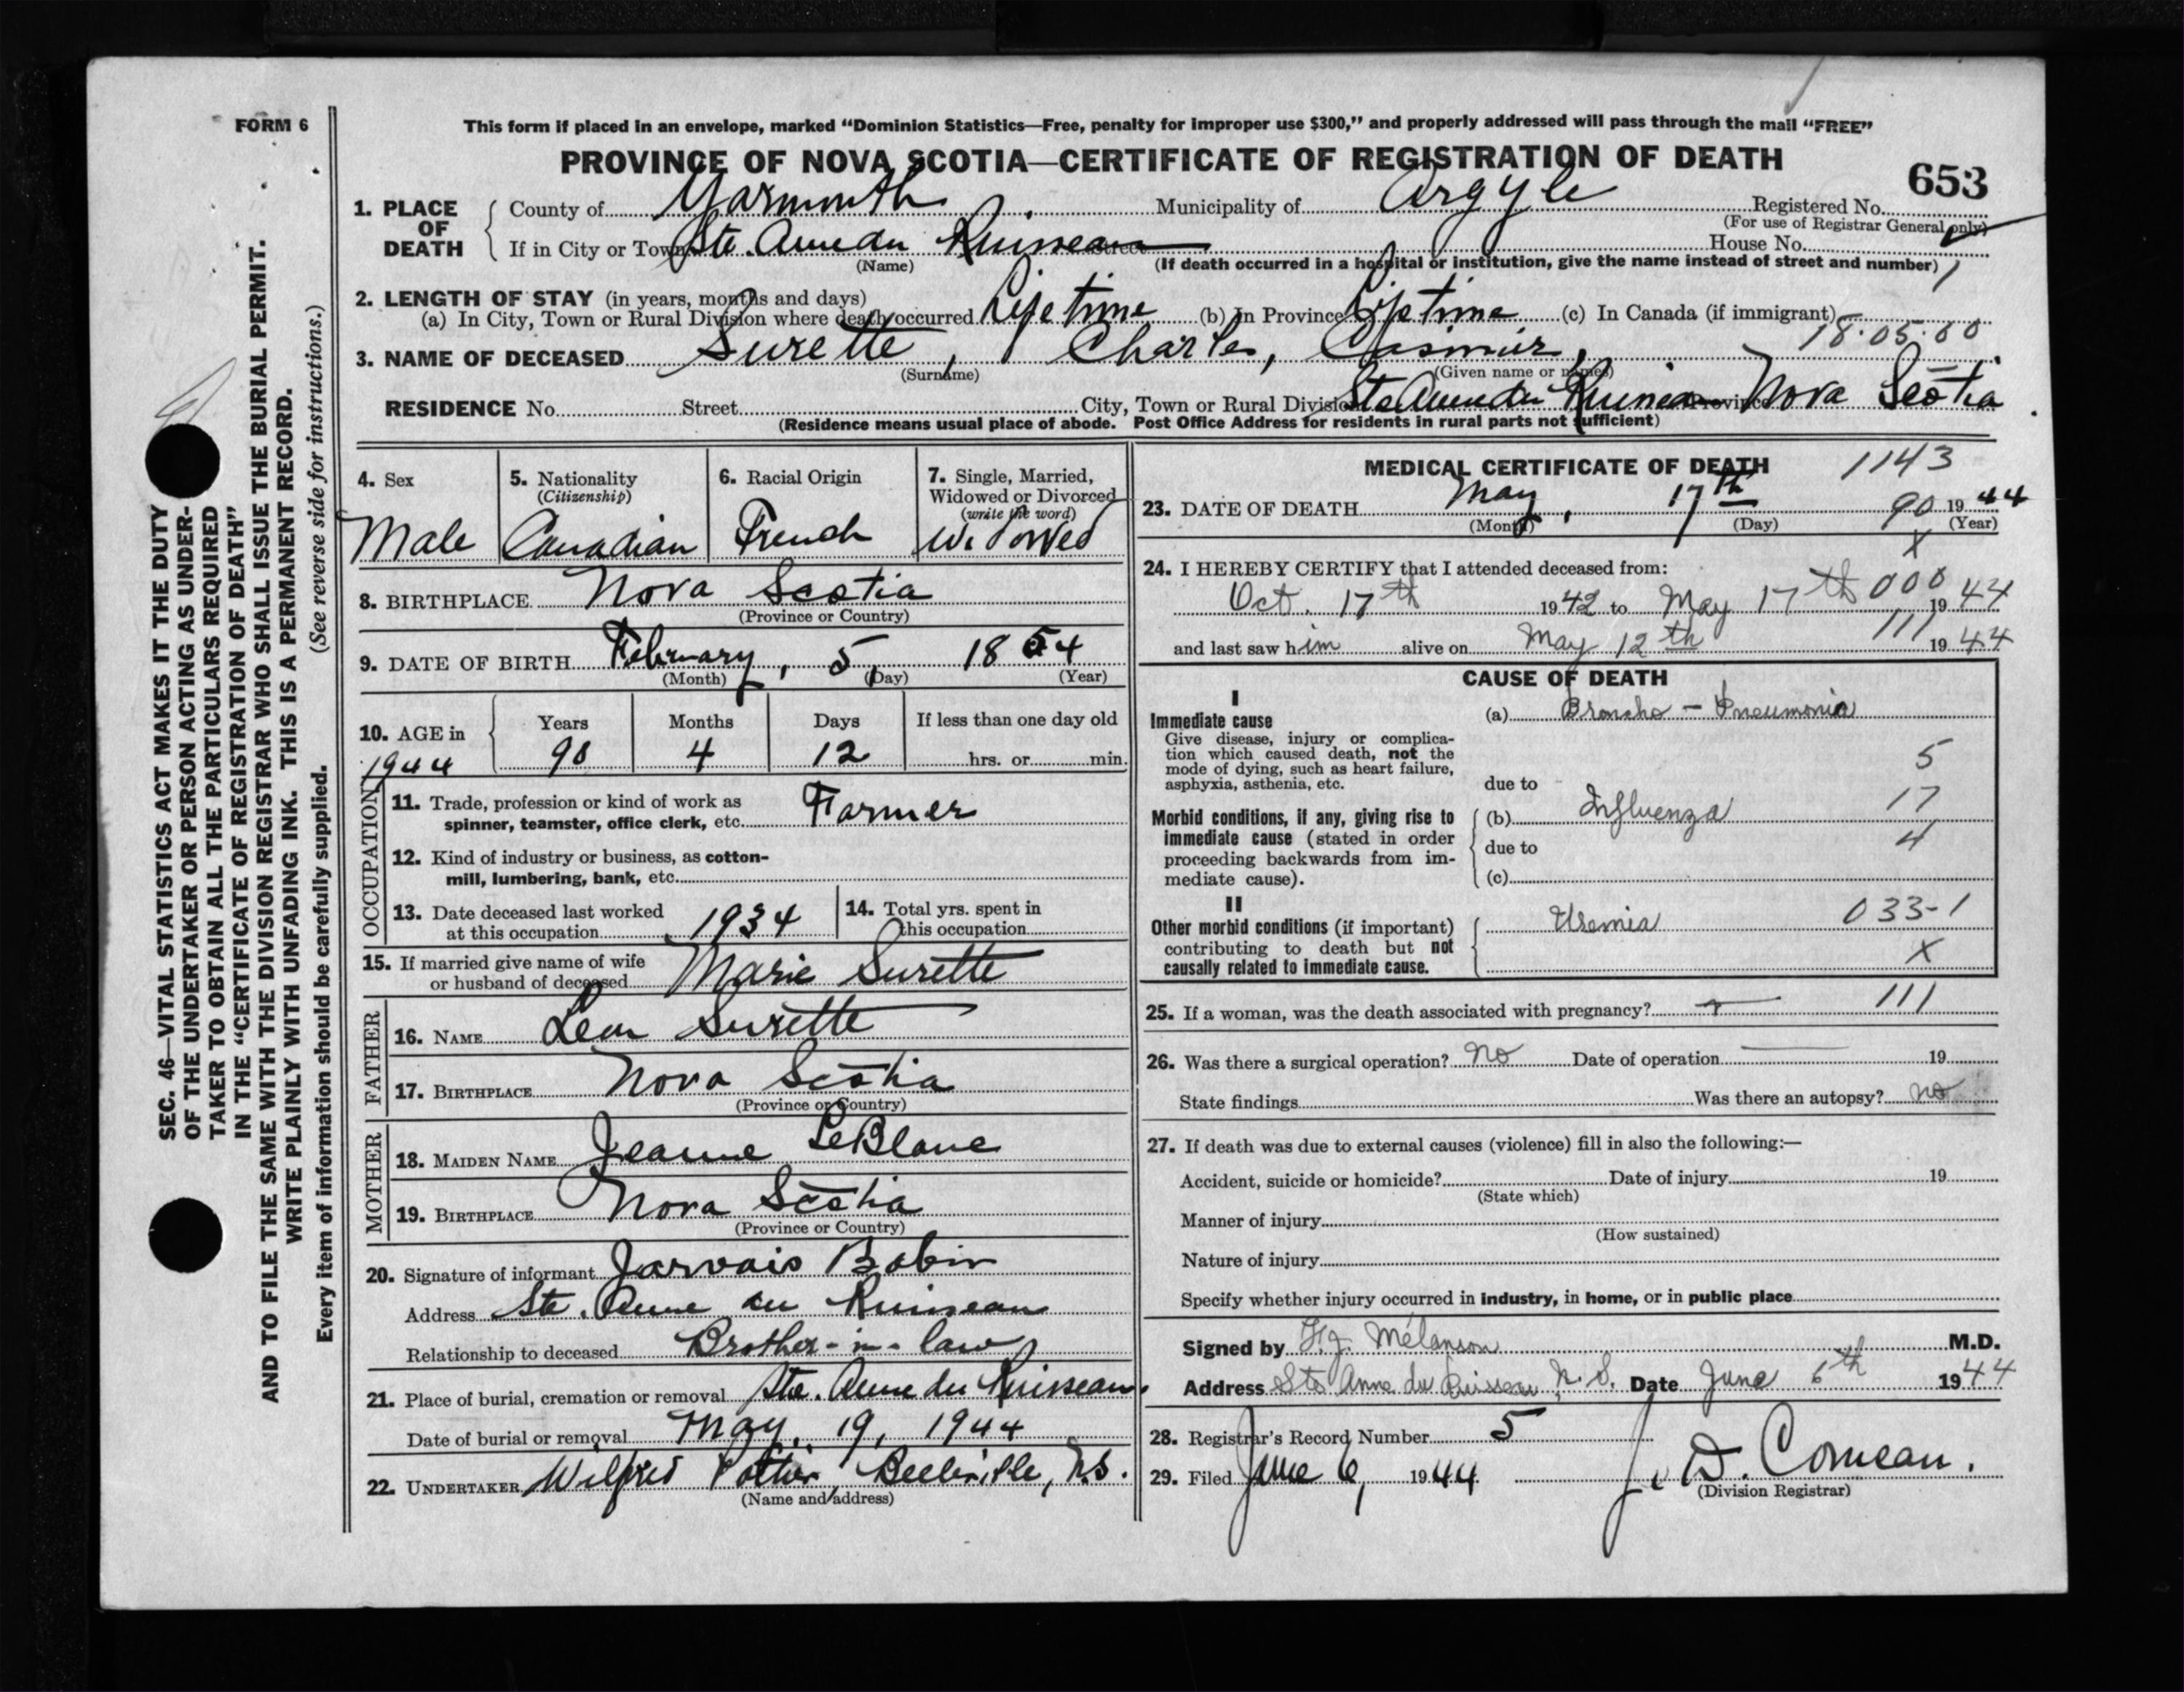 FORM 6
This form if placed in an envelope, marked “Dominion Statistics—Free, penalty for improper use $300,” and properly addressed will pass through the mail “FREE”
PROVINCE OF NOVA SCOTIA—CERTIFICATE OF REGISTRATION OF DEATH
653
1. PLACE OF DEATH
County of Yarmouth Municipality of Argyle Registered No.
(For use of Registrar General only)
If in City or Town Ste. Anne du Ruisseau Street House No.
(Name) (If death occurred in a hospital or institution, give the name instead of street and number)
2. LENGTH OF STAY (in years, months and days)
(a) In City, Town or Rural Division where death occurred Lifetime (b) In Province Liftime (c) In Canada (if immigrant)
18.05.60
3. NAME OF DECEASED Surette, Charles, Casimir,
(Surname) (Given name or names)
RESIDENCE No. Street City, Town or Rural Division Ste Anne du Ruisseau Province Nova Scotia.
(Residence means usual place of abode. Post Office Address for residents in rural parts not sufficient)
4. Sex
Male
5. Nationality
(Citizenship)
Canadian
6. Racial Origin
French
7. Single, Married,
Widowed or Divorced
(write the word)
Widowed
8. BIRTHPLACE Nova Scotia
(Province or Country)
9. DATE OF BIRTH February, 5, 1854
(Month) (Day) (Year)
10. AGE in 1944
Years Months Days If less than one day old
90 4 12 hrs. or min.
OCCUPATION
11. Trade, profession or kind of work as
spinner, teamster, office clerk, etc. Farmer
12. Kind of industry or business, as cotton-
mill, lumbering, bank, etc.
13. Date deceased last worked
at this occupation 1934
14. Total yrs. spent in
this occupation
15. If married give name of wife
or husband of deceased Marie Surette
FATHER
16. NAME Leon Surette
17. BIRTHPLACE Nova Scotia
(Province or Country)
MOTHER
18. MAIDEN NAME Jeanne LeBlanc
19. BIRTHPLACE Nova Scotia
(Province or Country)
20. Signature of informant Jarvais Babin
Address Ste. Anne du Ruisseau
Relationship to deceased Brother-in-law
21. Place of burial, cremation or removal Ste. Anne du Ruisseau.
Date of burial or removal May, 19, 1944
22. UNDERTAKER Wilfred Pothier, Belleville, N.S.
(Name and address)
MEDICAL CERTIFICATE OF DEATH 1143
23. DATE OF DEATH May, 17th 90 1944
(Month) (Day) (Year)
X
24. I HEREBY CERTIFY that I attended deceased from:
Oct. 17th 1942 to May 17th 000 1944
and last saw him alive on May 12th 111 1944
CAUSE OF DEATH
I
Immediate cause
Give disease, injury or complica-
tion which caused death, not the
mode of dying, such as heart failure,
asphyxia, asthenia, etc.
(a) Broncho - Pneumonia
5
due to
17
Morbid conditions, if any, giving rise to
immediate cause (stated in order
proceeding backwards from im-
mediate cause).
(b) Influenza
4
due to
(c)
II
Other morbid conditions (if important)
contributing to death but not
causally related to immediate cause.
Uremia 033-1
X
25. If a woman, was the death associated with pregnancy? 111
26. Was there a surgical operation? No Date of operation 19
State findings Was there an autopsy? No
27. If death was due to external causes (violence) fill in also the following:—
Accident, suicide or homicide? Date of injury 19
(State which)
Manner of injury
(How sustained)
Nature of injury
Specify whether injury occurred in industry, in home, or in public place
Signed by Mélanson M.D.
Address Ste Anne du Ruisseau, N.S. Date June 6th 1944
28. Registrar's Record Number 5
29. Filed June 6, 1944 J. D. Comeau.
(Division Registrar)
SEC. 46—VITAL STATISTICS ACT MAKES IT THE DUTY
OF THE UNDERTAKER OR PERSON ACTING AS UNDER-
TAKER TO OBTAIN ALL THE PARTICULARS REQUIRED
IN THE “CERTIFICATE OF REGISTRATION OF DEATH”
AND TO FILE THE SAME WITH THE DIVISION REGISTRAR WHO SHALL ISSUE THE BURIAL PERMIT.
WRITE PLAINLY WITH UNFADING INK. THIS IS A PERMANENT RECORD.
Every item of information should be carefully supplied. (See reverse side for instructions.)